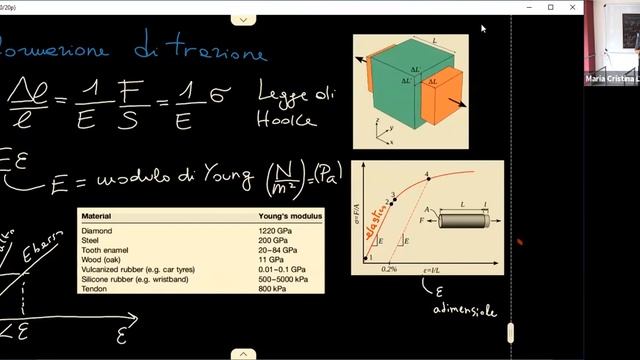 0/20p)
Deformazione di trazione
Δl/l = 1/E F/S = 1/E σ Legge di Hooke
Eε
E = modulo di Young (N/m²) = (Pa)
Material Young's modulus
Diamond 1220 GPa
Steel 200 GPa
Tooth enamel 20–84 GPa
Wood (oak) 11 GPa
Vulcanized rubber (e.g. car tyres) 0.01–0.1 GPa
Silicone rubber (e.g. wristband) 500–5000 kPa
Tendon 800 kPa
E basso
< E
ε
L
ΔL'
ΔL'
ΔL
z
y
x
σ=F/A
elastico
1
2
3
4
E
E
0.2%
ε=l/L
A
L
l
F
F
ε
adimensiole
Maria Cristina